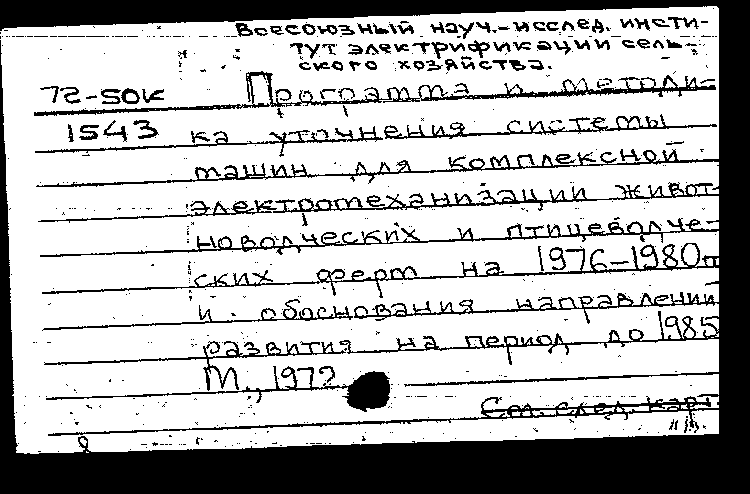 Всесоюзный науч.-исслед. инсти-
тут электрификации сель-
ского хозяйства.
72-50к Программа и методи-
1543 ка уточнения системы
машин для комплексной
электромеханизации живот-
новодческих и птицеводче-
ских ферм на 1976-1980гг
и обоснования направлений
развития на период до 1985
М., 1972
См. след. карт.